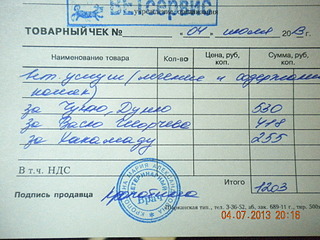 ВЕТСЕРВИС
ТОВАРНЫЙ ЧЕК № 04 июля 2013 г.
Наименование товара Кол-во Цена, руб, коп. Сумма, руб, коп.
вет. услуги (лечение и содержание
кошек)
за Чукао, Дуню 530
за Васю 478
за Хакамаду 255
В т.ч. НДС
Итого 1203
Подпись продавца
ВЕТЕРИНАРНЫЙ
Врач
МАРИЯ АЛЕКСАНДРОВНА
тип., тел. 3-36-52, зак. 689-11 г., тир. 500
04.07.2013 20:16